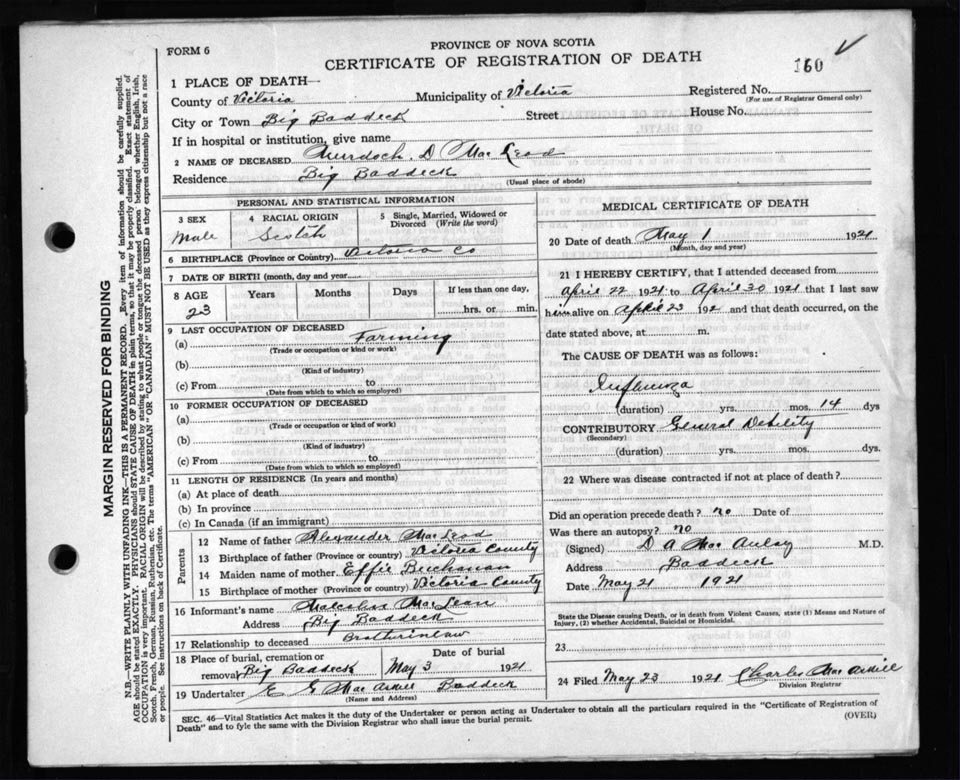 FORM 6
PROVINCE OF NOVA SCOTIA
CERTIFICATE OF REGISTRATION OF DEATH
160
1 PLACE OF DEATH—
County of Victoria Municipality of Victoria Registered No.
(For use of Registrar General only)
City or Town Big Baddeck Street House No.
If in hospital or institution, give name
2 NAME OF DECEASED Murdoch. D MacLeod
Residence Big Baddeck
(Usual place of abode)
PERSONAL AND STATISTICAL INFORMATION
3 SEX 4 RACIAL ORIGIN 5 Single, Married, Widowed or Divorced (Write the word)
Male Scotch
6 BIRTHPLACE (Province or Country) Victoria Co
7 DATE OF BIRTH (month, day and year)
8 AGE Years Months Days If less than one day,
23 hrs. or min.
9 LAST OCCUPATION OF DECEASED
(a) Farming
(Trade or occupation or kind or work)
(b)
(Kind of industry)
(c) From to
(Date from which to which so employed)
10 FORMER OCCUPATION OF DECEASED
(a)
(Trade or occupation or kind of work)
(b)
(Kind of industry)
(c) From to
(Date from which to which so employed)
11 LENGTH OF RESIDENCE (In years and months)
(a) At place of death
(b) In province
(c) In Canada (if an immigrant)
Parents
12 Name of father Alexander MacLeod
13 Birthplace of father (Province or country) Victoria County
14 Maiden name of mother Effie Buchanan
15 Birthplace of mother (Province or country) Victoria County
16 Informant's name Malcolm MacLean
Address Big Baddeck
17 Relationship to deceased Brotherinlaw
18 Place of burial, cremation or removal Big Baddeck Date of burial May 3 1921
19 Undertaker E G MacAskill Baddeck
(Name and Address)
MEDICAL CERTIFICATE OF DEATH
20 Date of death May 1 1921
(Month, day and year)
21 I HEREBY CERTIFY, that I attended deceased from
April 22 1921 to April 30 1921 that I last saw
him alive on April 23 192 and that death occurred, on the
date stated above, at m.
The CAUSE OF DEATH was as follows:
Influenza
(duration) yrs. mos. 14 dys
CONTRIBUTORY General Debility
(Secondary)
(duration) yrs. mos. dys.
22 Where was disease contracted if not at place of death?
Did an operation precede death? no Date of
Was there an autopsy? no
(Signed) D A MacAulay M.D.
Address Baddeck
Date May 21 1921
State the Disease causing Death, or in death from Violent Causes, state (1) Means and Nature of
Injury, (2) whether Accidental, Suicidal or Homicidal.
23
24 Filed May 23 1921 Charles MacAskill
Division Registrar
SEC. 46—Vital Statistics Act makes it the duty of the Undertaker or person acting as Undertaker to obtain all the particulars required in the "Certificate of Registration of
Death" and to fyle the same with the Division Registrar who shall issue the burial permit.
(OVER)
MARGIN RESERVED FOR BINDING
N.B.—WRITE PLAINLY WITH UNFADING INK—THIS IS A PERMANENT RECORD. Every item of information should be carefully supplied.
AGE should be stated EXACTLY. PHYSICIANS should STATE CAUSE OF DEATH in plain terms, so that it may be properly classified. Exact statement of
OCCUPATION is very important. RACIAL ORIGIN will be described by stating to what people or tongue the deceased person belonged, whether English, Irish,
Scotch, French, German, Russian, Ruthenian, etc. The terms "AMERICAN" OR "CANADIAN" MUST NOT BE USED as they express citizenship but not a race
or people. See instructions on back of Certificate.